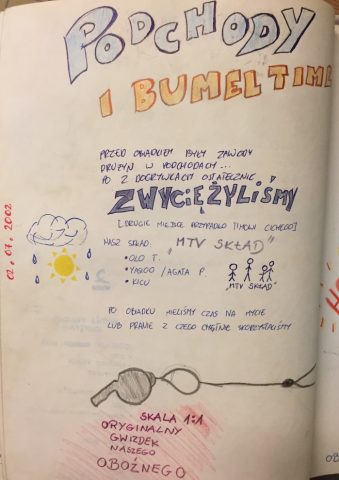 PODCHODY
I BUMELTIME
02.07.2002
PRZED OBIADEM BYŁY ZAWODY
DRUŻYN W PODCHODACH...
PO 2 DOGRYWKACH OSTATECZNIE
ZWYCIĘŻYLIŚMY
[DRUGIE MIEJSCE PRZYPADŁO TIMOWI CICHEGO]
NASZ SKŁAD: "MTV SKŁAD"
• OLO T.
• YAGOO / AGATA P.
• KICU
"MTV SKŁAD"
PO OBIADKU MIELIŚMY CZAS NA MYCIE
LUB PRANIE Z CZEGO CHĘTNIE SKORZYSTALIŚMY
SKALA 1:1
ORYGINALNY
GWIZDEK
NASZEGO
OBOŹNEGO